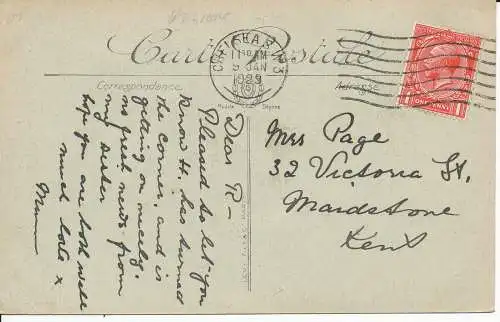 Carte Postale
Correspondance
Adresse
CHELSEA S.W.3
11 30 AM
9 JAN
1929
ONE PENNY
Dear R-
Pleased to let you
know H. has turned
the corner, and is
getting on nicely.
no great news from
my sister
hope you are both well
much love x
Mum
Mrs Page
32 Victoria St.
Maidstone
Kent